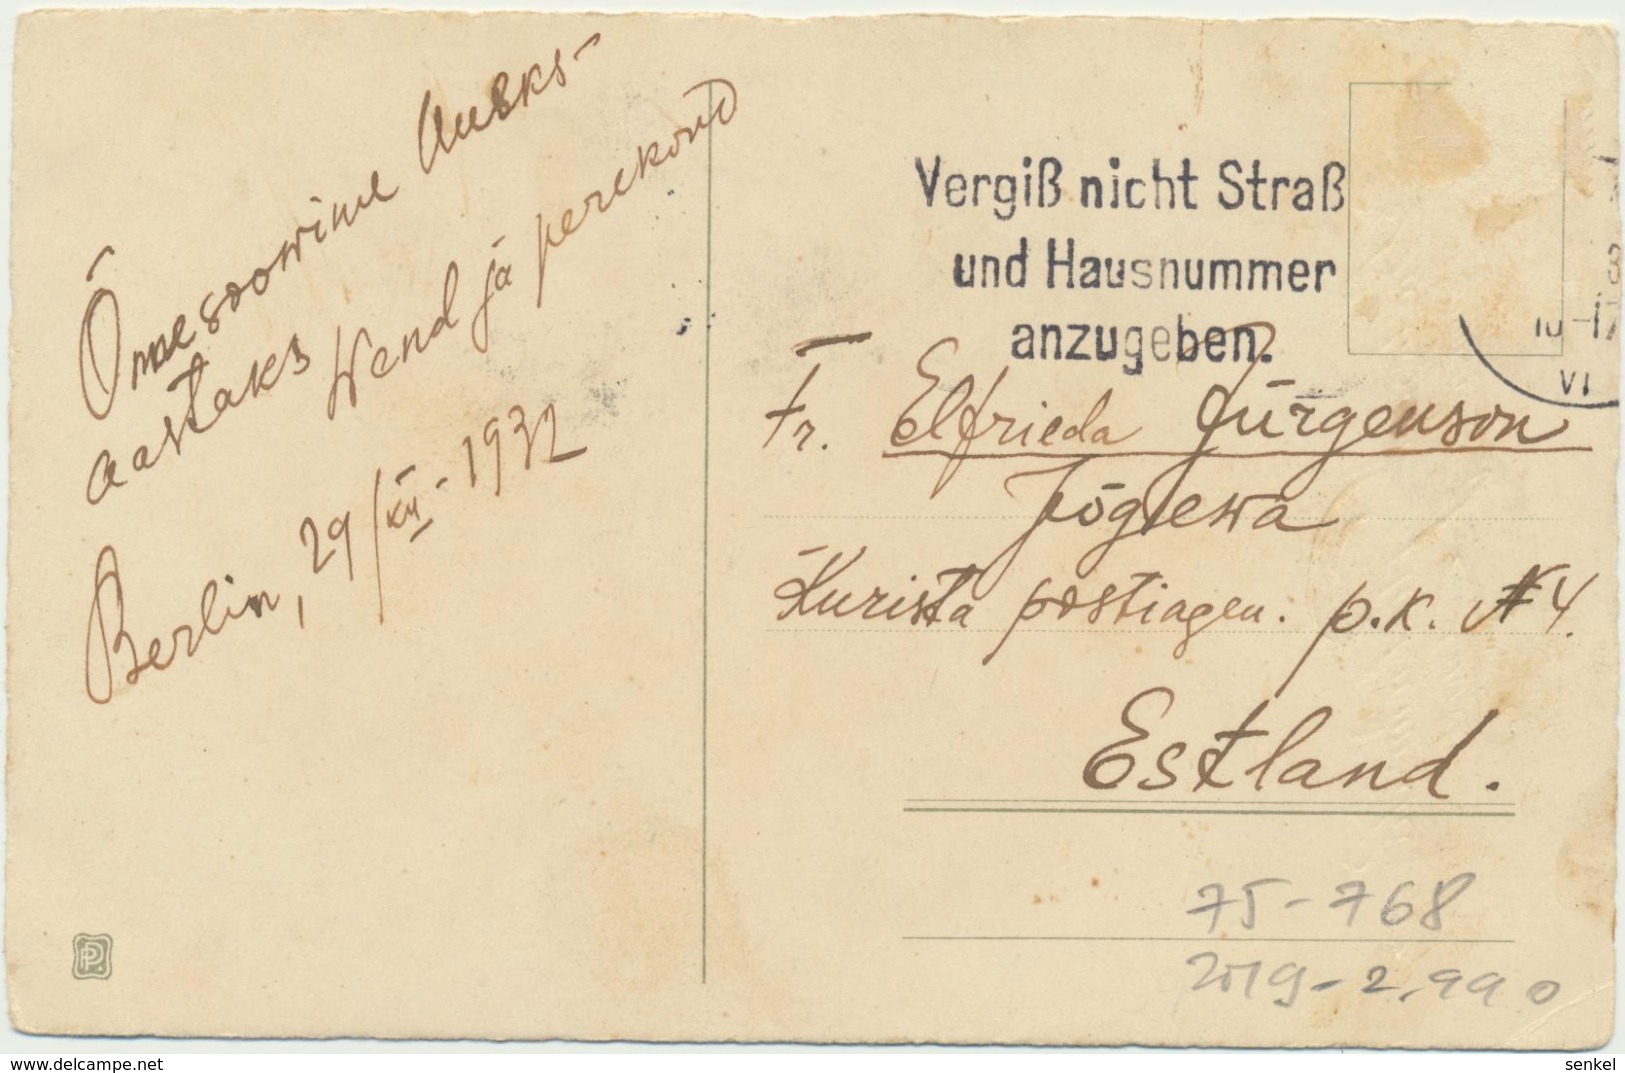 Õnnesoowime Aueks-
aastaks Wend ja perekond
Berlin, 29/XII-1932
Vergiß nicht Straß
und Hausnummer
anzugeben.
10-17
VI
Fr. Elfrieda Jürgenson
Jõgewa
Kurista postiagen. p.k. № 4.
Estland.
75-768
2019-2.990
PP.
senkel